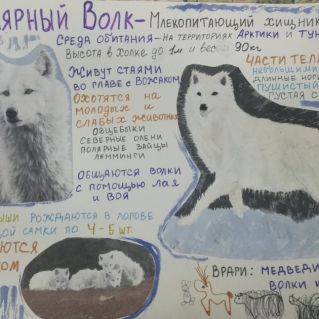 ЯРНЫЙ ВОЛК - МЛЕКОПИТАЮЩИЙ ХИЩНИК
СРЕДА ОБИТАНИЯ - НА ТЕРРИТОРИЯХ АРКТИКИ И ТУН
ВЫСОТА В ХОЛКЕ ДО 1м И ВЕСОМ 90кг
ЖИВУТ СТАЯМИ
ВО ГЛАВЕ С ВОЖАКОМ
ОХОТЯТСЯ НА
МОЛОДЫХ И
СЛАБЫХ ЖИВОТНЫХ
ОВЦЕБЫКИ
СЕВЕРНЫЕ ОЛЕНИ
ПОЛЯРНЫЕ ЗАЙЦЫ
ЛЕММИНГИ
ОБЩАЮТСЯ ВОЛКИ
С ПОМОЩЬЮ ЛАЯ
И ВОЯ
ЧАСТИ ТЕЛ
НЕБОЛЬШИМИ
ДЛИННЫЕ НОГ
ПУШИСТЫЙ
ГУСТАЯ С
ЫШИ РОЖДАЮТСЯ В ЛОГОВЕ
ОЙ САМКИ ПО 4-5 ШТ.
ЮТСЯ
КОМ
ВРАГИ: МЕДВЕДИ
ВОЛКИ И